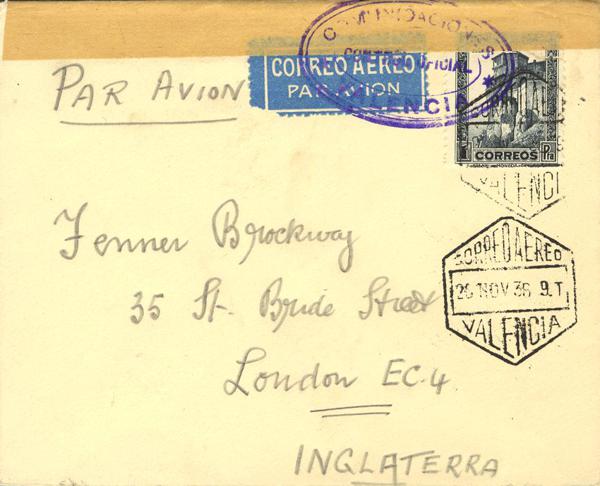 COMUNICACIONES
CONTROL OFICIAL
VALENCIA
CORREO AEREO
PAR AVION
PAR AVION
1 CORREOS Pta
VALENCI
Fenner Brockway
35 St. Bride Street
London EC.4
INGLATERRA
CORREO AEREO
20 NOV 36 9.T
VALENCIA